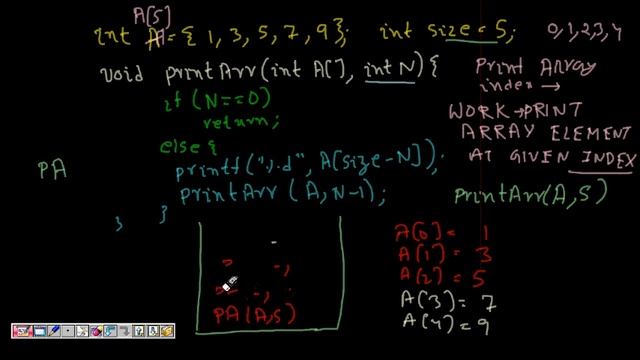 A[5]
int A = { 1, 3, 5, 7, 9 }; int size = 5; 0,1,2,3,4
void printArr(int A[], int N){
if (N==0)
return;
else {
printf("%d", A[size-N]);
printArr (A, N-1);
}
}
Print Array
index →
WORK → PRINT
ARRAY ELEMENT
AT GIVEN INDEX
PA
printArr(A,5)
PA(A,5)
A[0] = 1
A[1] = 3
A[2] = 5
A[3] = 7
A[4] = 9